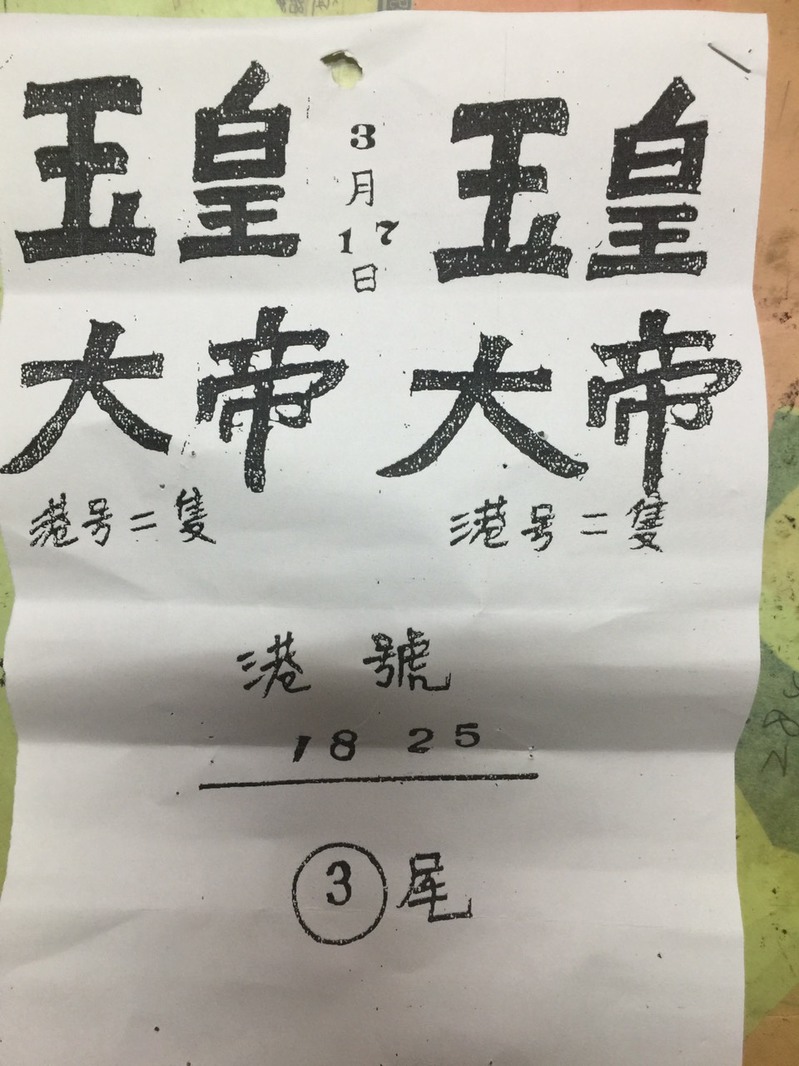 玉皇
大帝
港号二隻
3
月
17
日
玉皇
大帝
港号二隻
港號
18 25
3尾